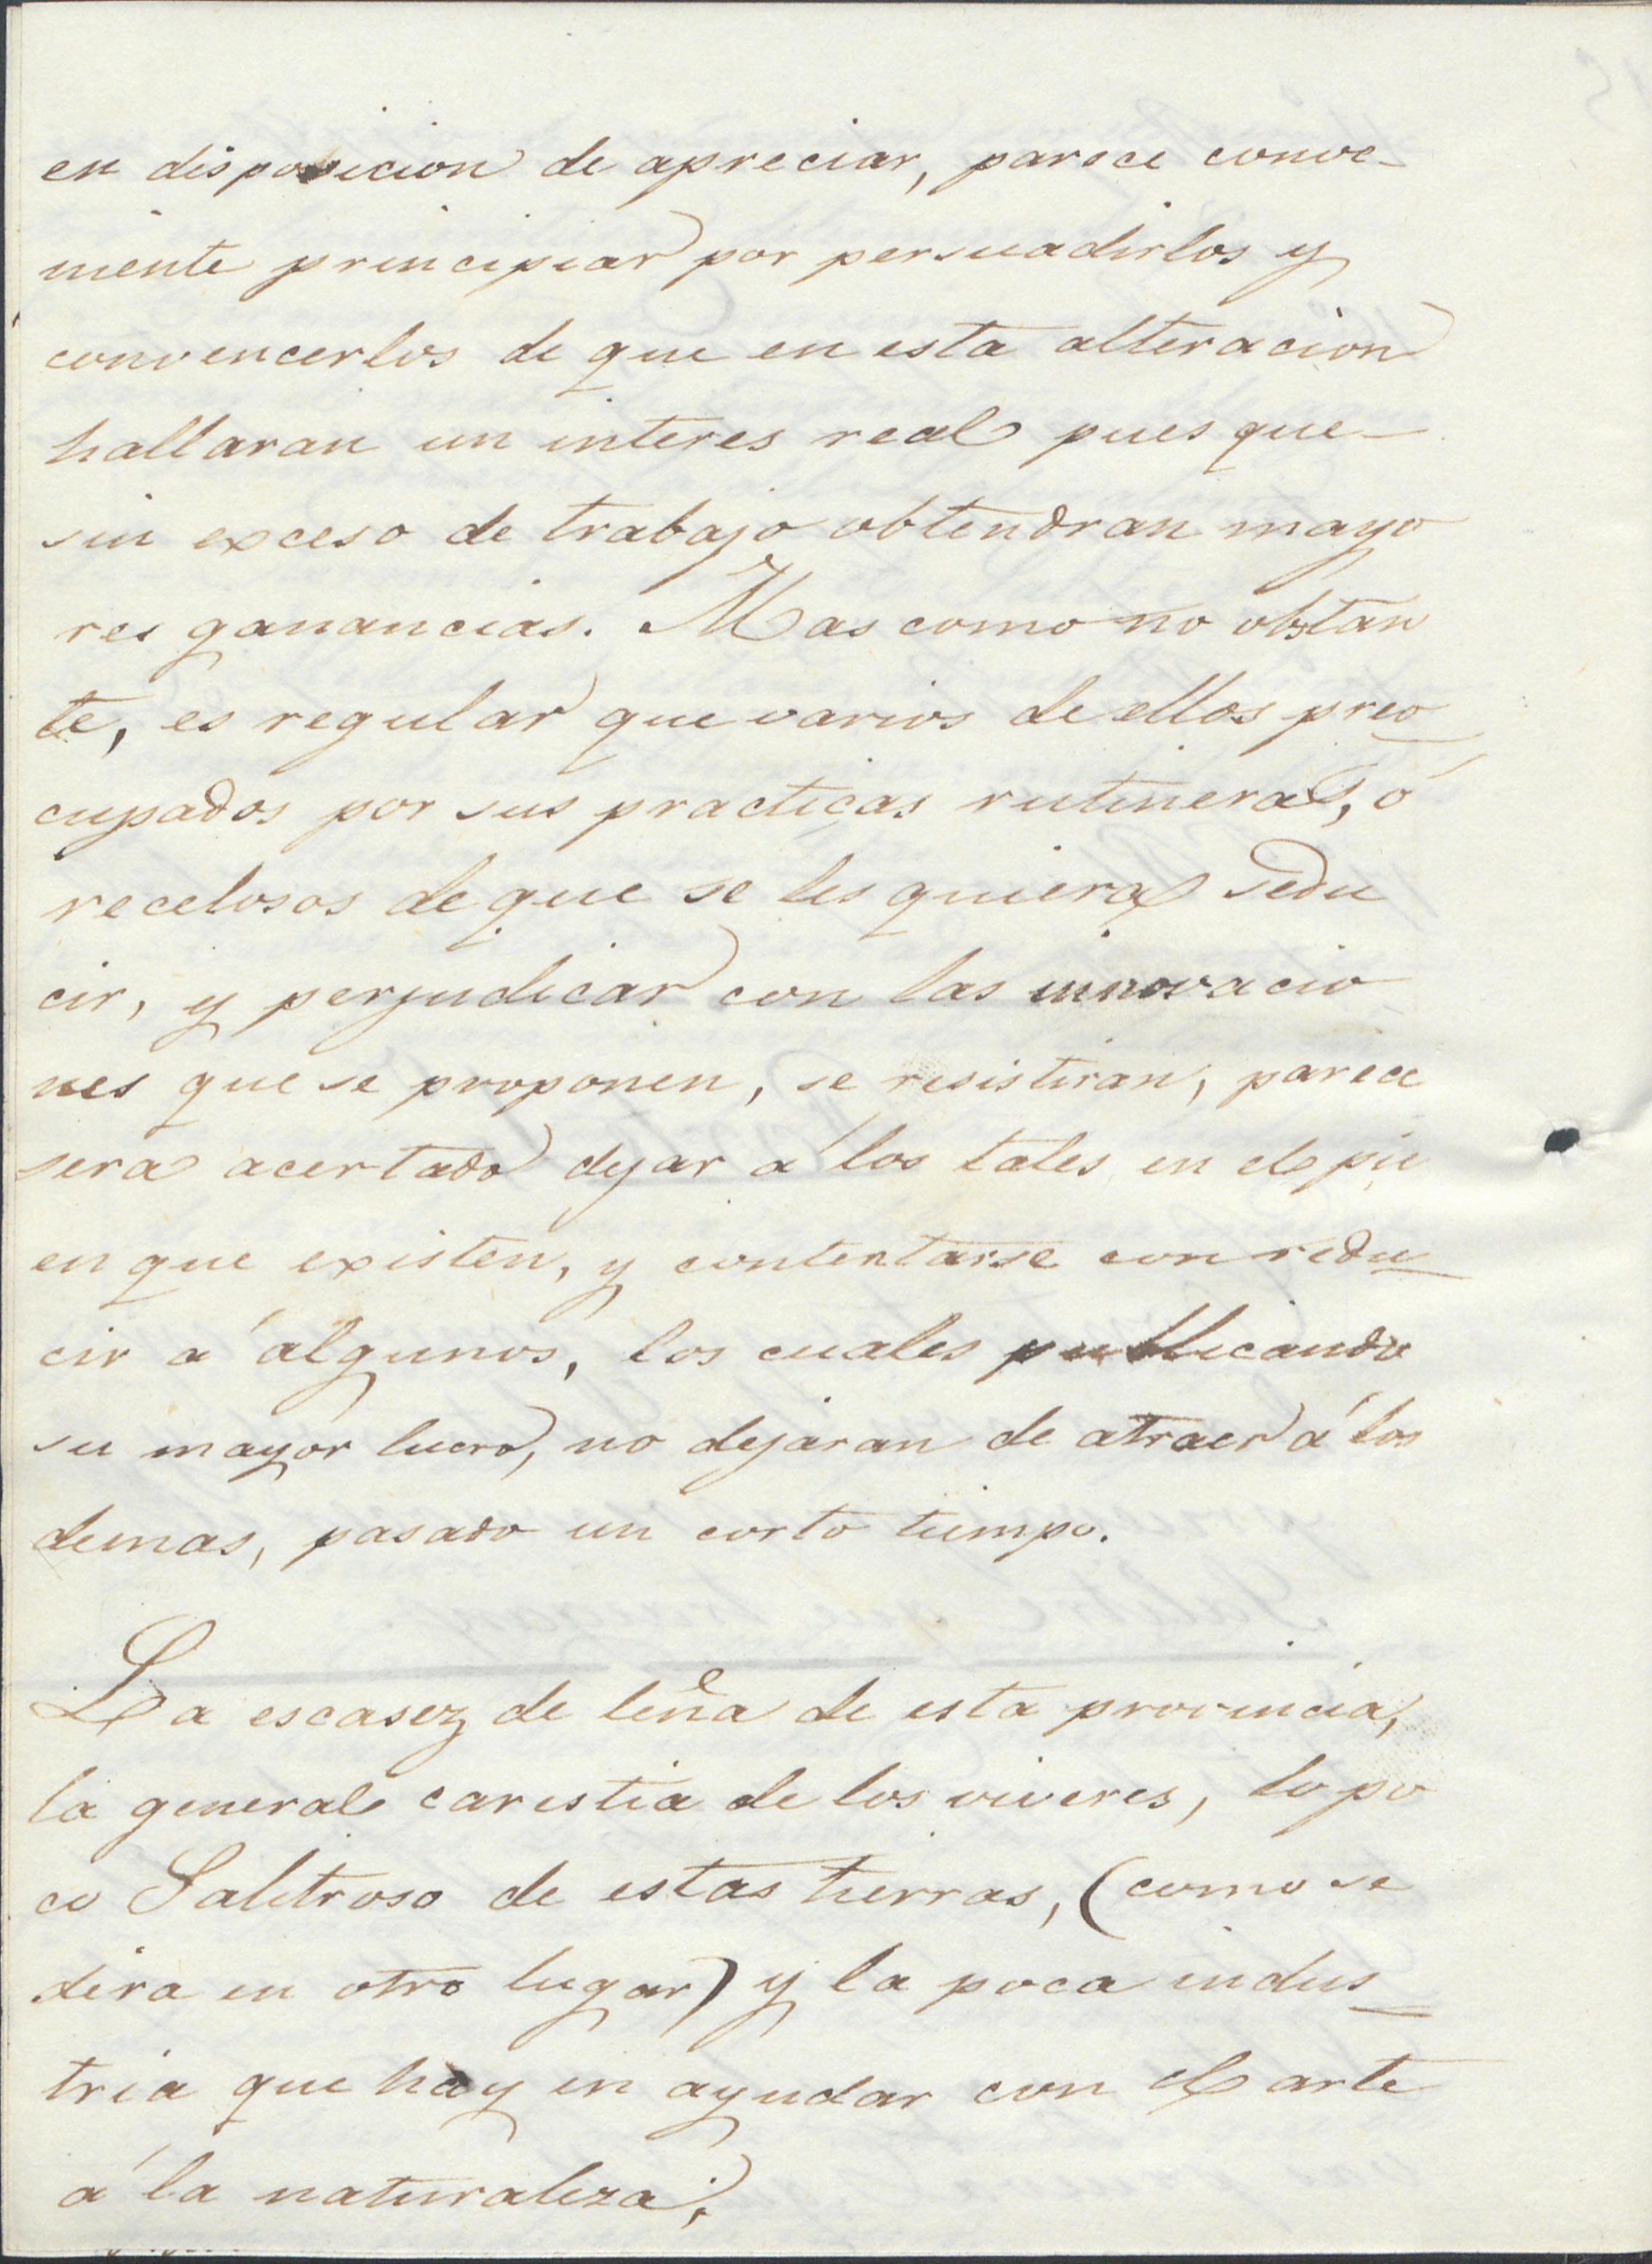 en disposicion de apreciar, parece conve-
niente principiar por persuadirlos y
convencerlos de que en esta alteracion
hallaran un interes real pues que-
sin exceso de trabajo obtendran mayo
res ganancias. Mas como no obstan
te, es regular que varios de ellos preo
cupados por sus practicas rutineras, ó
recelosos de que se les quiera sedu
cir, y perjudicar con las innovacio
nes que se proponen, se resistiran, parece
sera acertado dejar á los tales en el pie
en que existen, y contentarse con redu
cir á algunos, los cuales publicando
su mayor lucro, no dejaran de atraer á los
demas, pasado un corto tiempo.
La escasez de leña de esta provincia,
la general carestia de los viveres, lo po
co Salitroso de estas tierras, (como se
dira en otro lugar) y la poca indus
tria que hay en ayudar con el arte
á la naturaleza;